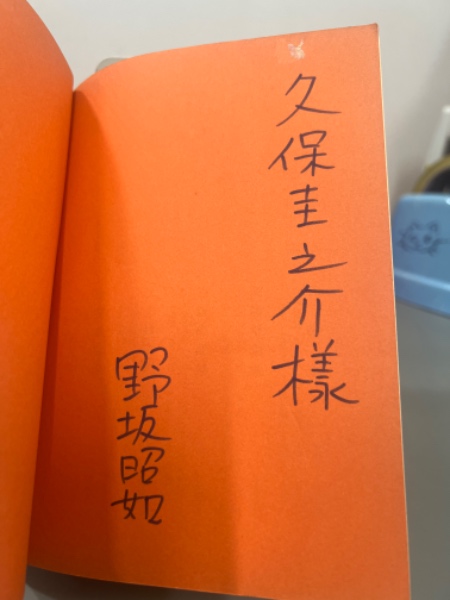 久保圭之介様
野坂昭如